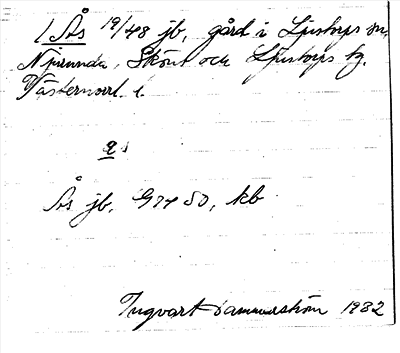 1 Ås 19/48 jb, gård i Ljustorps sn,
Njurunda, Sköns och Ljustorps tg.
Västernorrl. l.
a
Ås jb, GV SO, kb
Ingvart Dammerström 1982